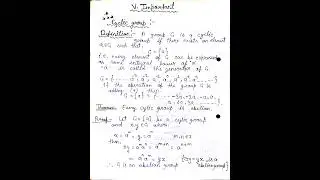 V. Important
Cyclic group :-
Definition:- A group G is a cyclic
group if there exists an element
a∈G such that
G = {a}
i.e. every element of G can be expressed
as some integral power of 'a'
'a' is called the generator of G
G = {....... a⁻³, a⁻², a⁻¹, a⁰, a¹, a², a³, .......}
if the operation of the group G is
adding, then
G = {a} = { ..... -3a, -2a, -a, 0,
a, 2a, 3a, .....}
Theorem: Every cyclic group is abelian.
Proof:- Let G = {a} be a cyclic group
and x, y ∈ G where
x = aᵐ, y = aⁿ m, n ∈ z
then,
xy = aᵐaⁿ = aᵐ⁺ⁿ = aⁿ⁺ᵐ
= aⁿaᵐ = yx {xy = yx is a
∴ G is an abelian group abelian group}